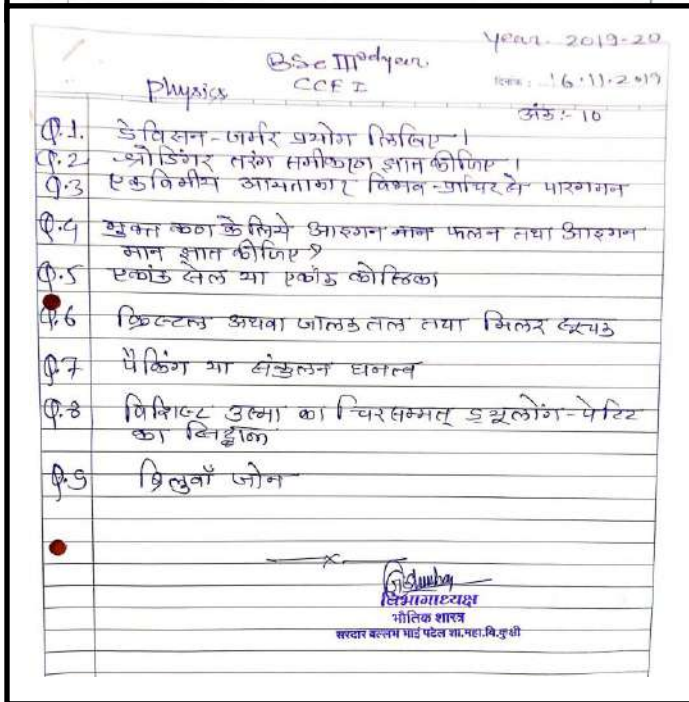 Year. 2019-20
BSc IIIrd year.
Physics CCE I दिनांक : 16.11.2019
अंक :- 10
Q.1. डेविसन-जर्मर प्रयोग लिखिए।
Q.2 श्रोडिंगर तरंग समीकरण ज्ञात कीजिए।
Q.3 एकविमीय आयताकार विभव-प्राचिर से पारगमन
Q.4 मुक्त कण के लिये आइगन मान फलन तथा आइगन
मान ज्ञात कीजिए ?
Q.5 एकांक सेल या एकांक कोष्ठिका
Q.6 क्रिस्टल अथवा जालक तल तथा मिलर सूचक
Q.7 पैकिंग या संकुलन घनत्व
Q.8 विशिष्ट उष्मा का चिरसम्मत् ड्यूलोंग-पेटिट
का सिद्धांत
Q.9 ब्रिलुवाँ जोन
x
विभागाध्यक्ष
भौतिक शास्त्र
सरदार वल्लभ भाई पटेल शा.महा.वि.कुक्षी